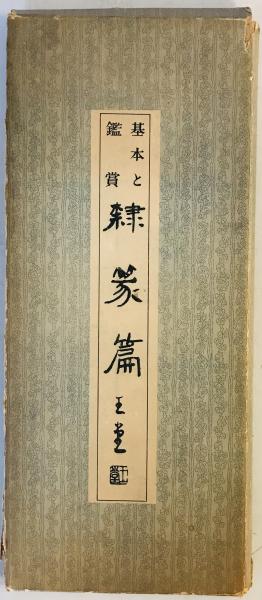 基本と
鑑賞
隸篆篇
王堂